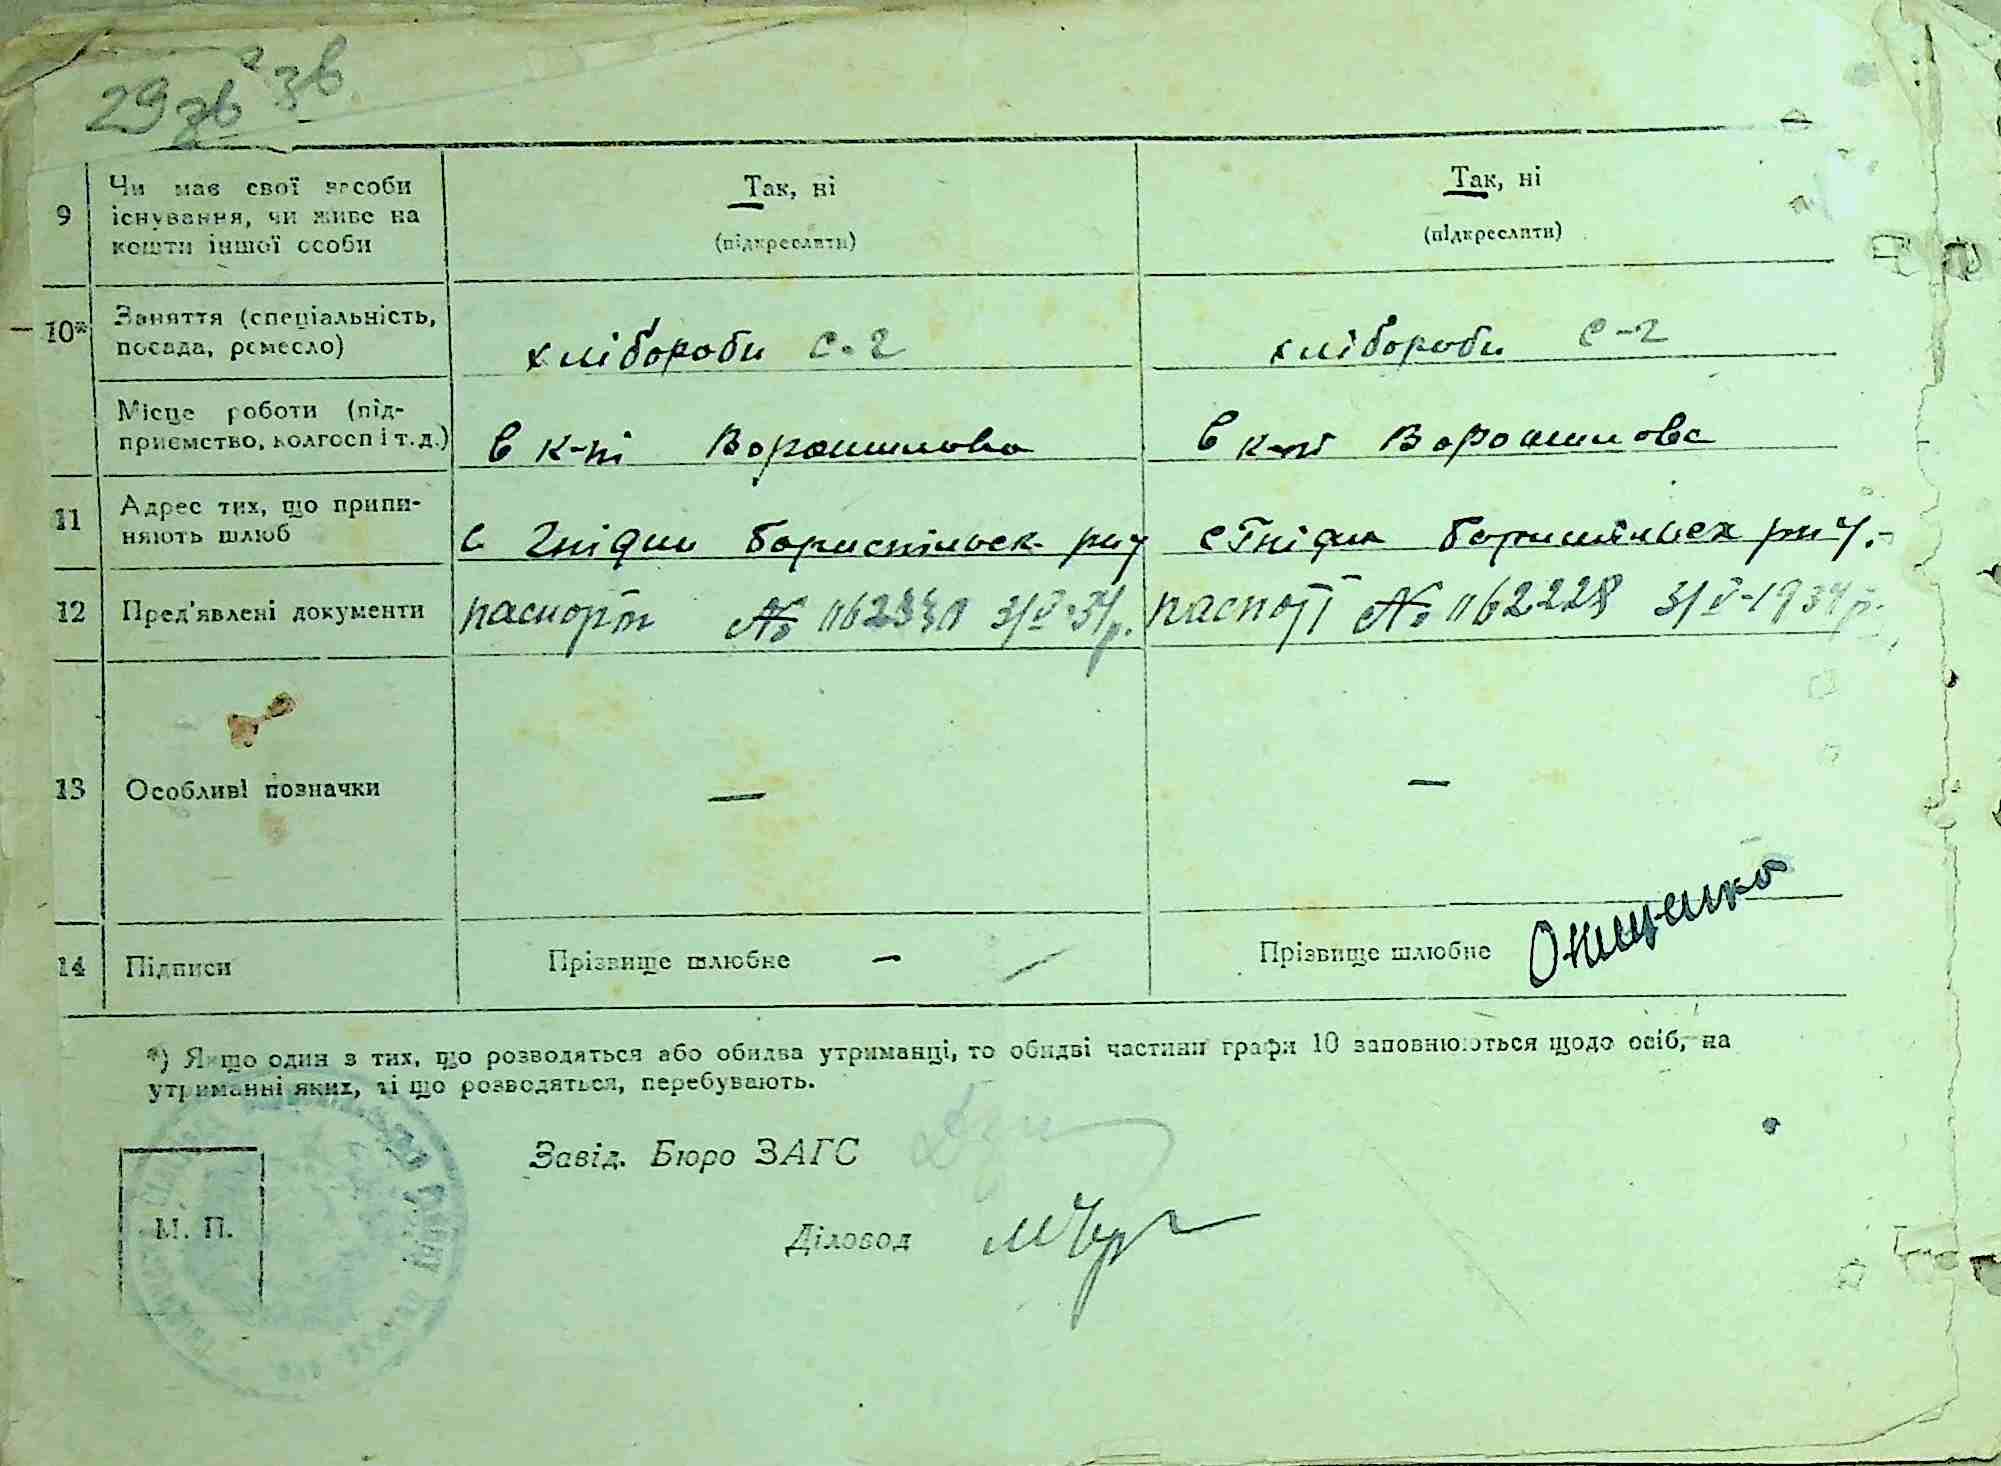 29 зв зв
9 Чи має свої засоби існування, чи живе на кошти іншої особи
Так, ні
(підкреслити)
Так, ні
(підкреслити)
10* Заняття (спеціальність, посада, ремесло)
хлібороби с-2
хлібороби с-2
Місце роботи (підприємство, колгосп і т. д.)
в к-пі Ворошилова
в к-пі Ворошилова
11 Адрес тих, що припиняють шлюб
с Гнідин Бориспільск
с Гнідин
12 Пред'явлені документи
паспорт №
паспорт № 3/V-1934 р.
13 Особливі позначки
—
—
14 Підписи
Прізвище шлюбне —
Прізвище шлюбне Онищенко
*) Якщо один з тих, що розводяться або обидва утриманці, то обидві частини графи 10 заповнюються щодо осіб, на
утриманні яких, ті що розводяться, перебувають.
Завід. Бюро ЗАГС
М. П.
Діловод